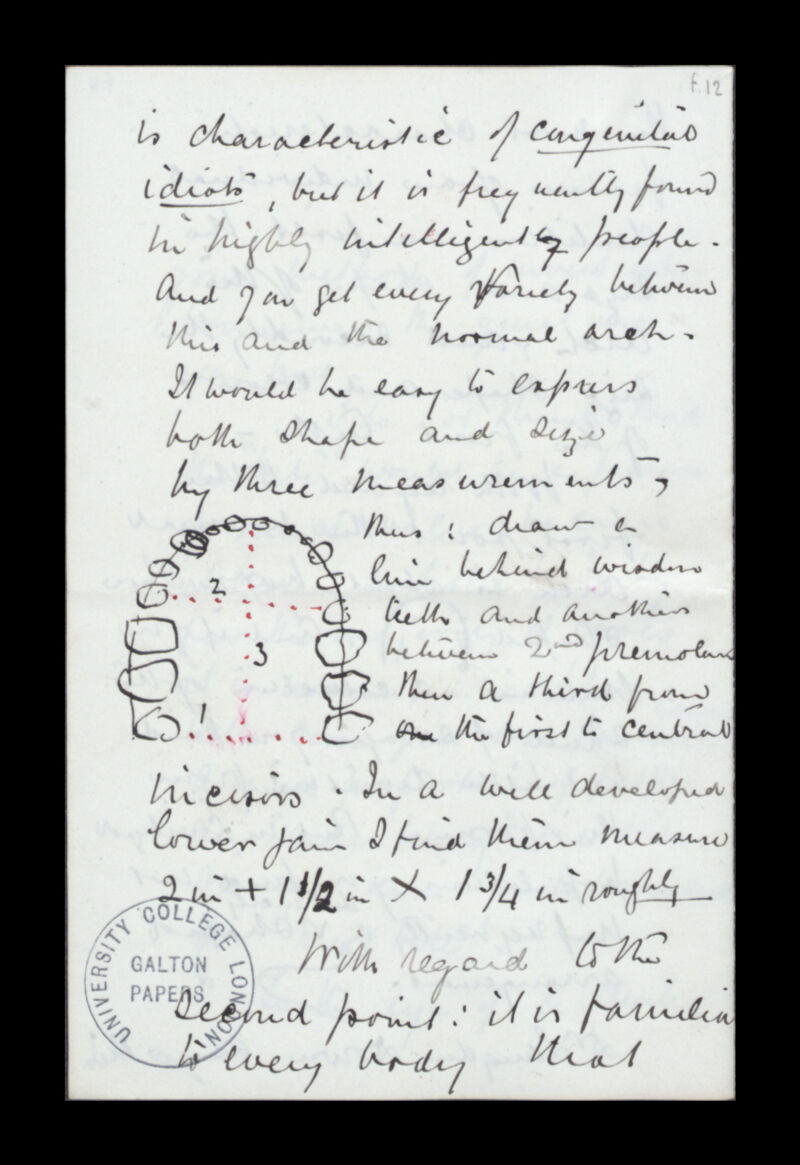 F.12
is characteristic of congenital
idiots, but it is frequently found
in highly intelligently people.
And you get every variety between
this and the normal arch.
It would be easy to express
both shape and size
by three measurements,
thus: draw a
line behind wisdom
teeth and another
between 2nd premolars
then a third from
the first to central
incisors. In a well developed
lower jaw I find them measure
2 in + 1 1/2 in × 1 3/4 in roughly
With regard to the
second point: it is familiar
to every body that
2
3
1
UNIVERSITY COLLEGE LONDON
GALTON
PAPERS